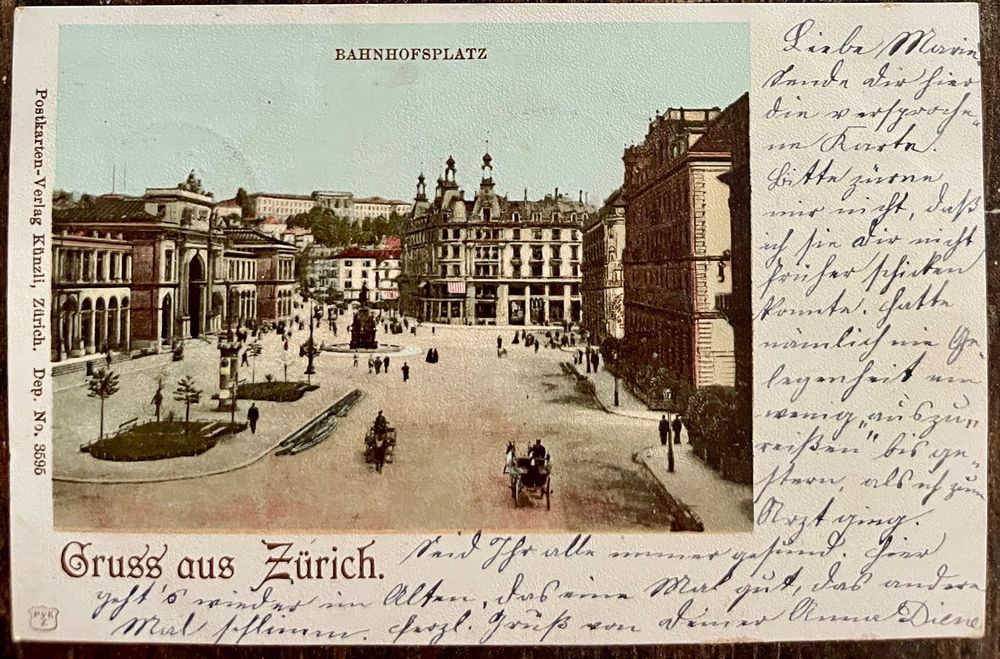 BAHNHOFSPLATZ
Postkarten-Verlag Künzli, Zürich. Dep. No. 3595
Gruss aus Zürich.
Liebe Marie
Sende Dir hier
die versproche-
ne Karte.
Bitte zürne
mir nicht, daß
ich sie Dir nicht
früher schicken
konnte. Hatte
nämlich nie Ge-
legenheit ein
wenig „auszu-
reißen" bis ge-
stern, als ich zum
Arzt ging.
Seid Ihr alle immer gesund. Hier
geht's wieder im Alten, das eine Mal gut, das andere
Mal schlimm. Herzl. Gruß von Deiner Anna